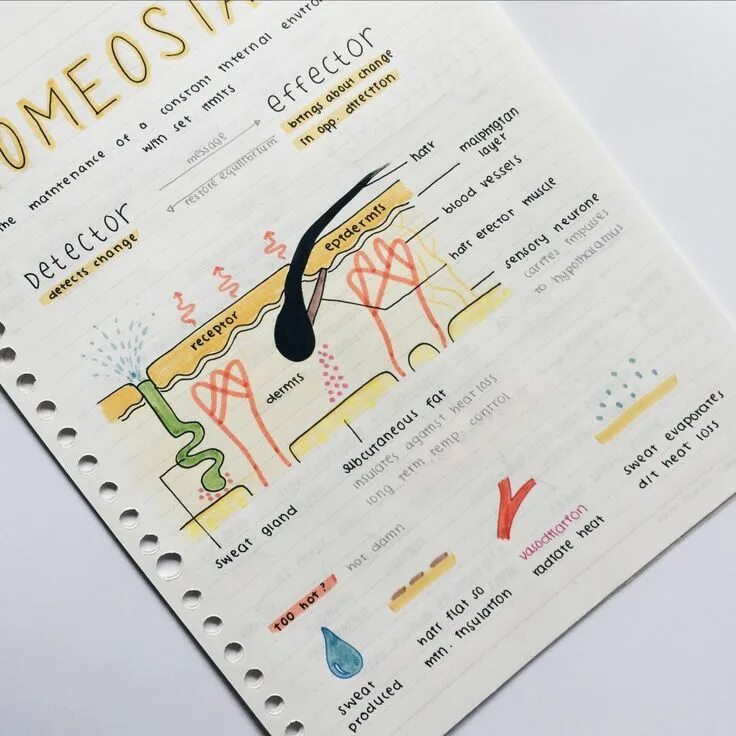 OMEOSTA
the maintenance of a constant internal enviro
with set limits
Detector
detects change
message
restore equilibrium
effector
brings about change
in opp. direction
hair
malphigian
layer
blood vessels
hair erector muscle
sensory neurone
carries impulses
to hypothalamus
epidermis
receptor
dermis
subcutaneous fat
insulates against heat loss
long term temp. control
sweat gland
too hot?
hot damn
sweat
produced
hair flat so
min. insulation
vasodilation
radiate heat
sweat evaporates
d/t heat loss